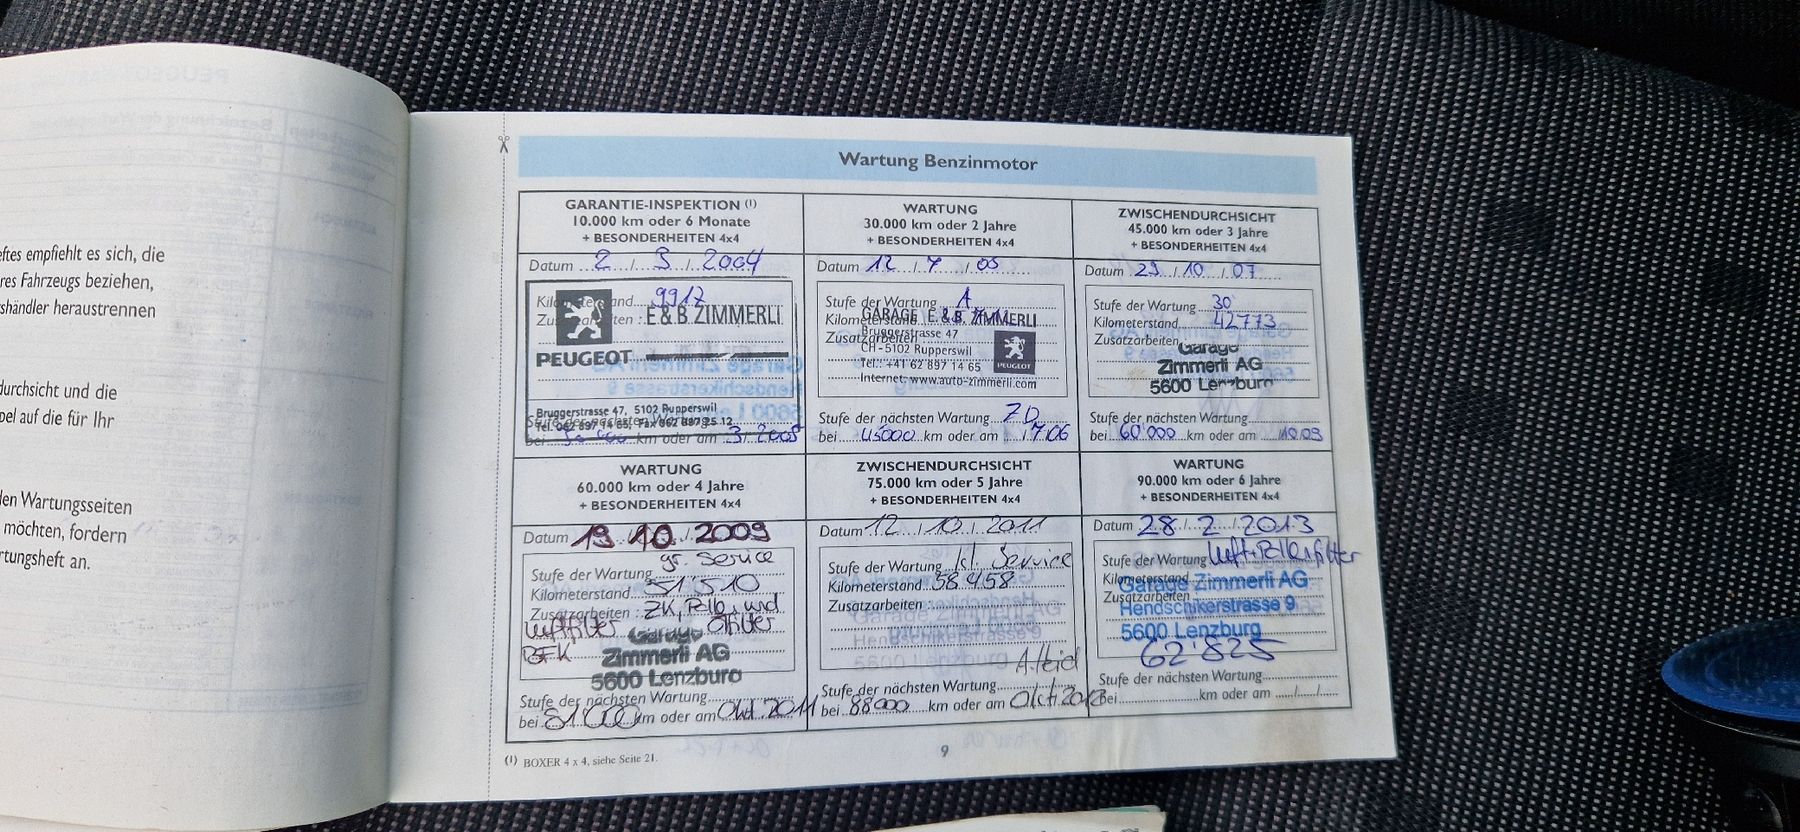 eftes empfiehlt es sich, die
res Fahrzeugs beziehen,
shändler heraustrennen
durchsicht und die
pel auf die für Ihr
den Wartungsseiten
möchten, fordern
rtungsheft an.
Wartung Benzinmotor
GARANTIE-INSPEKTION (1)
10.000 km oder 6 Monate
+ BESONDERHEITEN 4x4
Datum 2 / 3 / 2004
Kilometerstand 9917
Zusatzarbeiten :
E & B. ZIMMERLI
PEUGEOT
Bruggerstrasse 47, 5102 Rupperswil
Tel. 062 897 14 65, Fax 062 897 25 12
Stufe der nächsten Wartung
bei km oder am 3/2005
WARTUNG
30.000 km oder 2 Jahre
+ BESONDERHEITEN 4x4
Datum 12 / 7 / 05
Stufe der Wartung A
Kilometerstand
Zusatzarbeiten
GARAGE E. & B. ZIMMERLI
Bruggerstrasse 47
CH-5102 Rupperswil
Tel.: +41 62 897 14 65
Internet: www.auto-zimmerli.com
PEUGEOT
Stufe der nächsten Wartung ZD
bei 45000 km oder am 7/06
ZWISCHENDURCHSICHT
45.000 km oder 3 Jahre
+ BESONDERHEITEN 4x4
Datum 29 / 10 / 07
Stufe der Wartung 30
Kilometerstand 42773
Zusatzarbeiten
Garage
Zimmerli AG
5600 Lenzburg
Stufe der nächsten Wartung
bei 60'000 km oder am 10.09
WARTUNG
60.000 km oder 4 Jahre
+ BESONDERHEITEN 4x4
Datum 19 / 10 / 2009
gr. Service
Stufe der Wartung
Kilometerstand 51'510
Zusatzarbeiten : ZK, Rilb, und
Luftfilter Ölfilter
BFK
Garage
Zimmerli AG
5600 Lenzburg
Stufe der nächsten Wartung
bei 81000 km oder am Okt. 2011
ZWISCHENDURCHSICHT
75.000 km oder 5 Jahre
+ BESONDERHEITEN 4x4
Datum 12 / 10 / 2011
Stufe der Wartung kl. Service
Kilometerstand 58'458
Zusatzarbeiten
Garage Zimmerli AG
Hendschikerstrasse 9
5600 Lenzburg
Stufe der nächsten Wartung
bei 88000 km oder am Okt. 2013
WARTUNG
90.000 km oder 6 Jahre
+ BESONDERHEITEN 4x4
Datum 28 / 2 / 2013
Stufe der Wartung Luft+Pollenfilter
Kilometerstand
Zusatzarbeiten
Garage Zimmerli AG
Hendschikerstrasse 9
5600 Lenzburg
62'825
Stufe der nächsten Wartung
bei km oder am / /
(1) BOXER 4 x 4, siehe Seite 21.
9